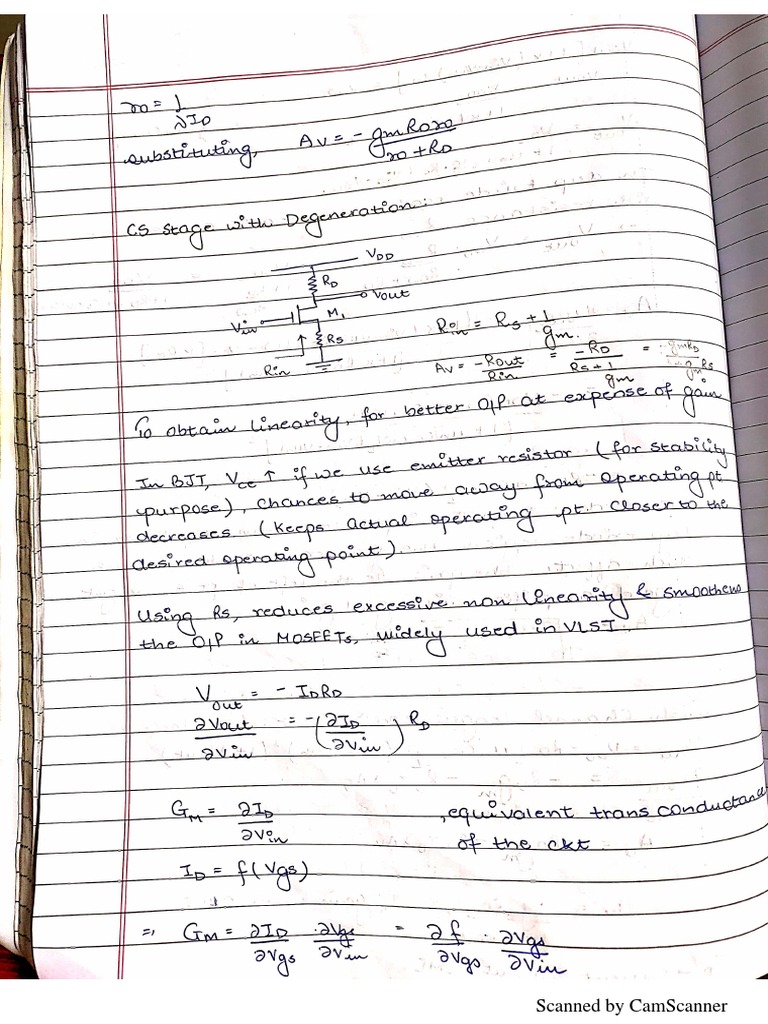 ro = 1/λID
substituting, Av = - gmRDro/ro+RD
CS Stage with Degeneration:
VDD
RD
Vout
M1
Vin
Rs
Rin
Rin = Rs + 1/gm.
Av = -Rout/Rin = -RD/Rs+1/gm = gmRD/1+gmRs
To obtain linearity, for better O/P at expense of gain
In BJT, Vce ↑ if we use emitter resistor (for stability
purpose), chances to move away from operating pt
decreases (keeps actual operating pt. closer to the
desired operating point)
Using Rs, reduces excessive non linearity & smoothens
the O/P in MOSFETs, widely used in VLSI.
Vout = - IDRD
∂Vout/∂Vin = -(∂ID/∂Vin) RD
GM = ∂ID/∂Vin , equivalent transconductance
of the ckt
ID = f(Vgs)
⇒ GM = ∂ID/∂Vgs · ∂Vgs/∂Vin = ∂f/∂Vgs · ∂Vgs/∂Vin
Scanned by CamScanner